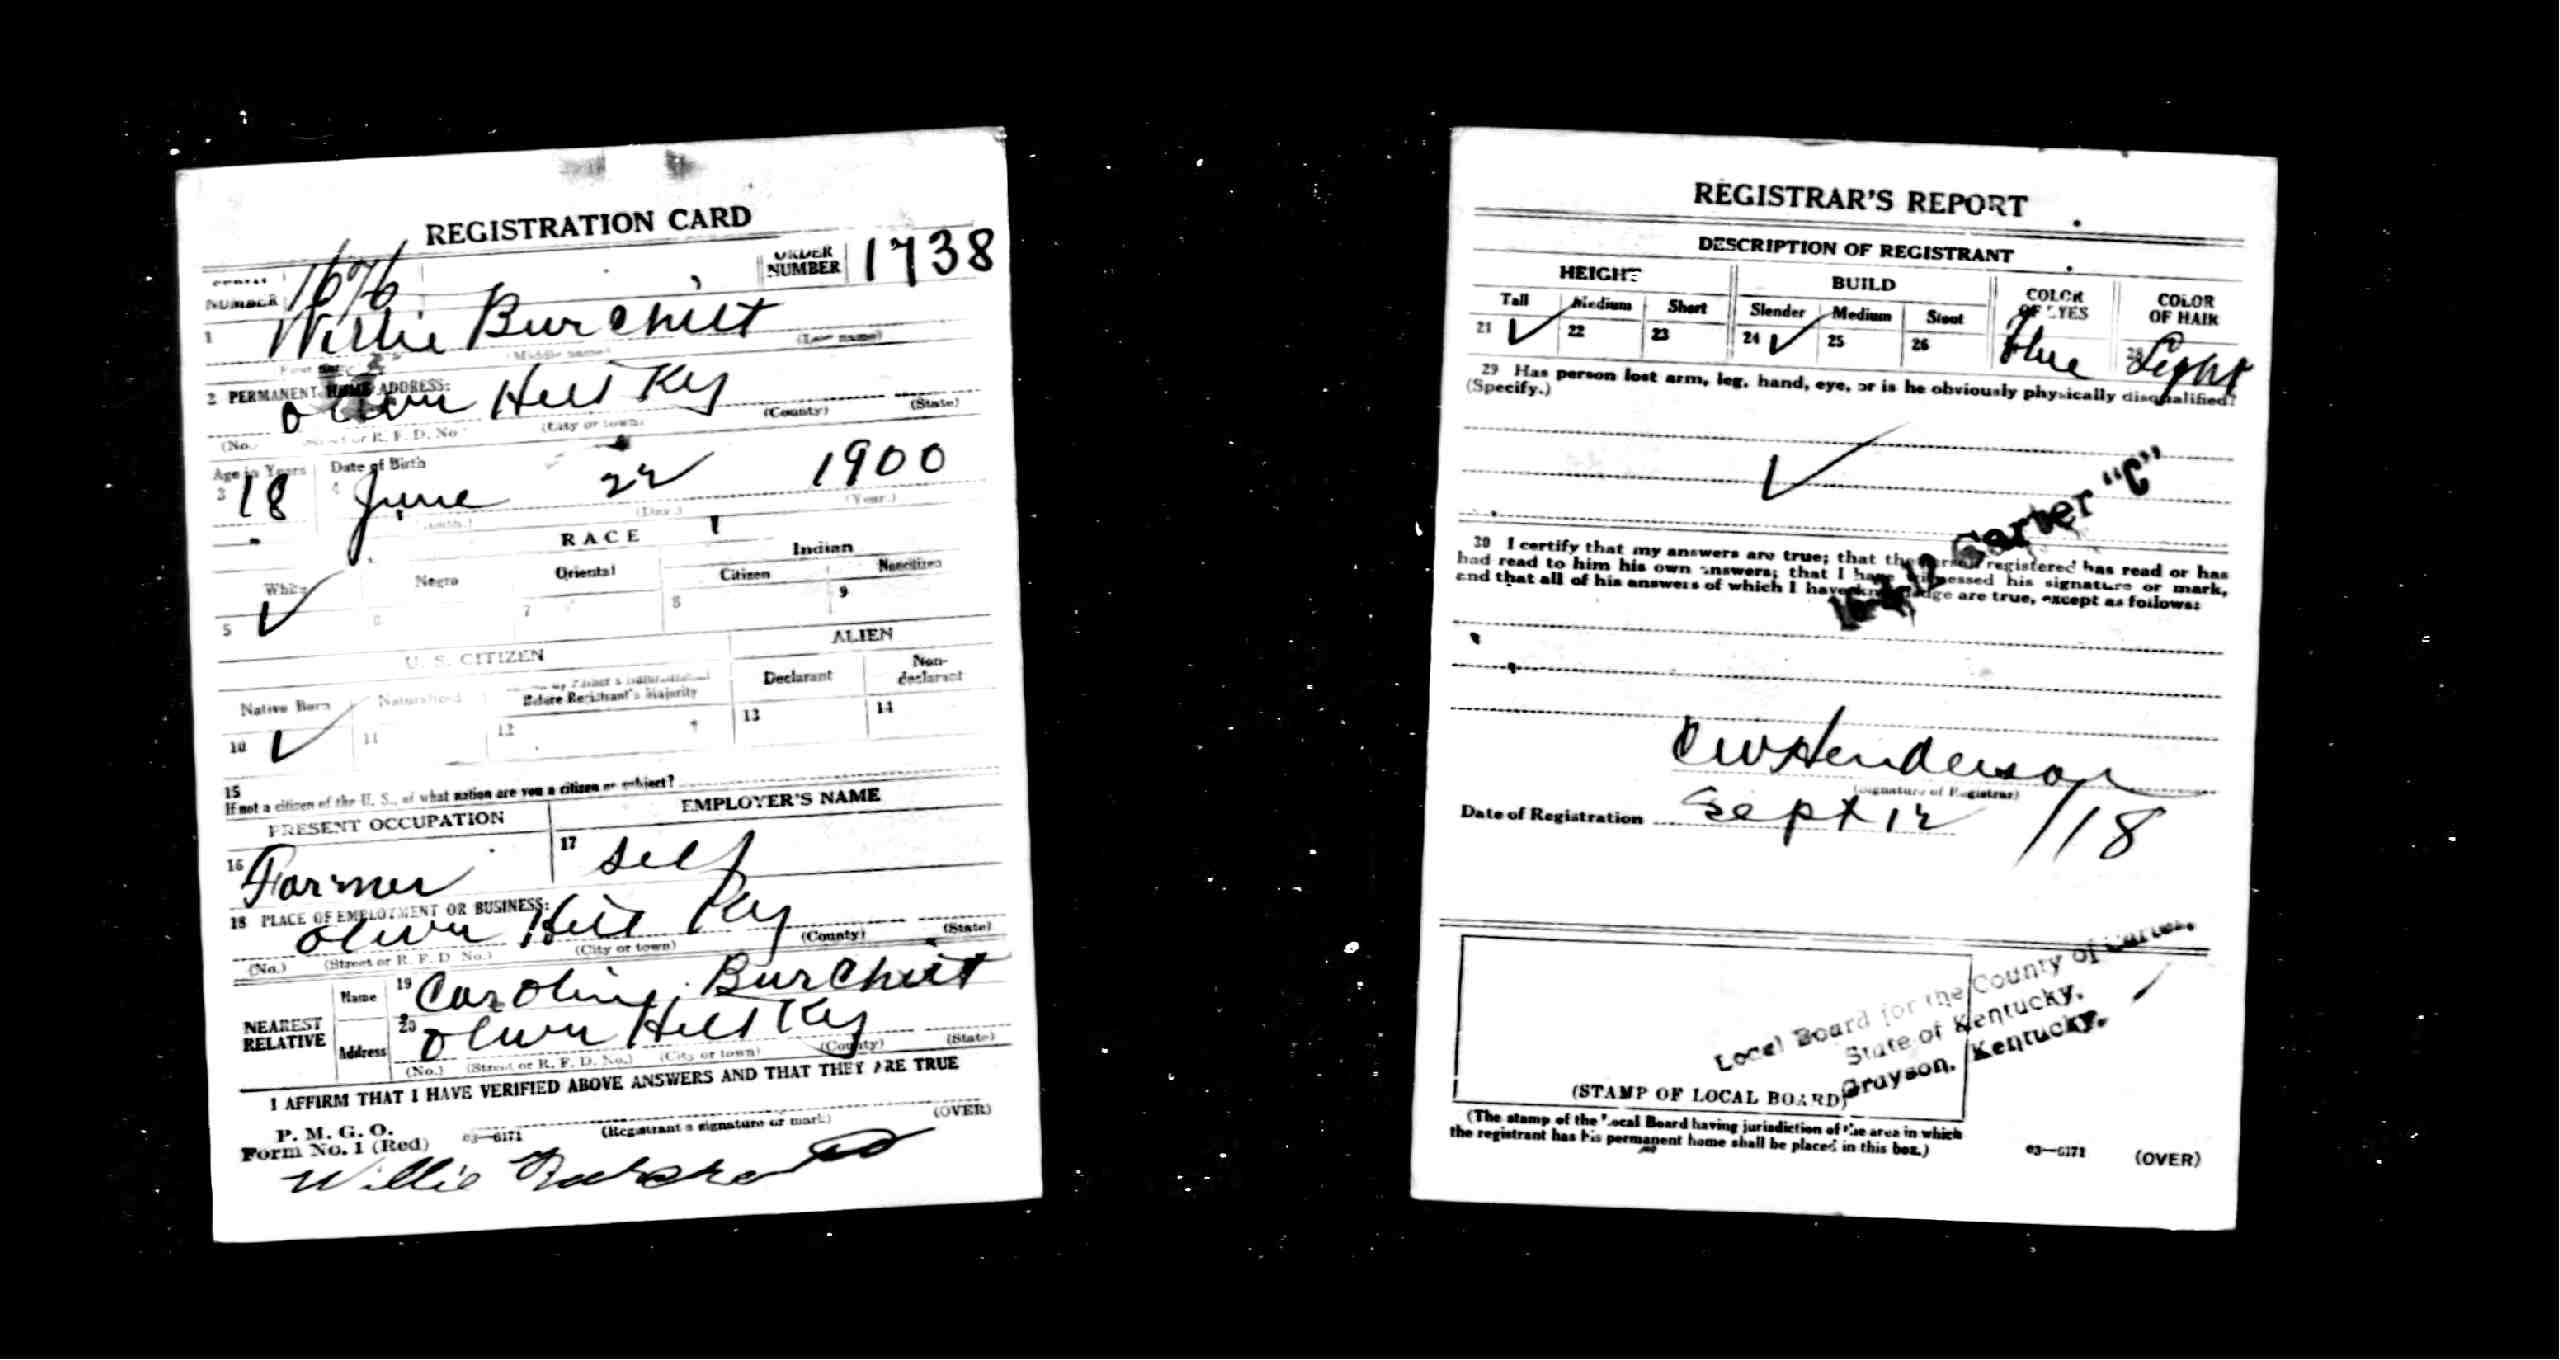 REGISTRATION CARD
SERIAL NUMBER 1676 ORDER NUMBER 1738
1 Willie Burchett
(First name) (Middle name) (Last name)
2 PERMANENT HOME ADDRESS:
Oliver Hill Ky
(No.) (Street or R. F. D. No.) (City or town) (County) (State)
Age in Years Date of Birth
3 18 4 June 22 1900
(Month.) (Day.) (Year.)
RACE
White Negro Oriental Indian
Citizen Noncitizen
5 ✓ 6 7 8 9
U. S. CITIZEN ALIEN
Native Born Naturalized Before Registrant's Majority Declarant Non-declarant
10 ✓ 11 12 13 14
15
If not a citizen of the U. S., of what nation are you a citizen or subject?
PRESENT OCCUPATION EMPLOYER'S NAME
16 Farmer 17 self
18 PLACE OF EMPLOYMENT OR BUSINESS:
Oliver Hill Ky
(No.) (Street or R. F. D. No.) (City or town) (County) (State)
NEAREST RELATIVE
Name 19 Caroline Burchett
Address 20 Oliver Hill Ky
(No.) (Street or R. F. D. No.) (City or town) (County) (State)
I AFFIRM THAT I HAVE VERIFIED ABOVE ANSWERS AND THAT THEY ARE TRUE
P. M. G. O.
Form No. 1 (Red) 03—6171 (Registrant's signature or mark) (OVER)
Willie
REGISTRAR'S REPORT
DESCRIPTION OF REGISTRANT
HEIGHT BUILD COLOR OF EYES COLOR OF HAIR
Tall Medium Short Slender Medium Stout
21 ✓ 22 23 24 ✓ 25 26 blue 28 Light
29 Has person lost arm, leg, hand, eye, or is he obviously physically disqualified?
(Specify.)
✓
16-2-12 Carter "C"
30 I certify that my answers are true; that the person registered has read or has
had read to him his own answers; that I have witnessed his signature or mark,
and that all of his answers of which I have knowledge are true, except as follows:
C W Henderson
(Signature of Registrar)
Date of Registration Sept 12 /18
Local Board for the County of Carter,
State of Kentucky,
Grayson, Kentucky.
(STAMP OF LOCAL BOARD)
(The stamp of the Local Board having jurisdiction of the area in which
the registrant has his permanent home shall be placed in this box.)
03—6171 (OVER)